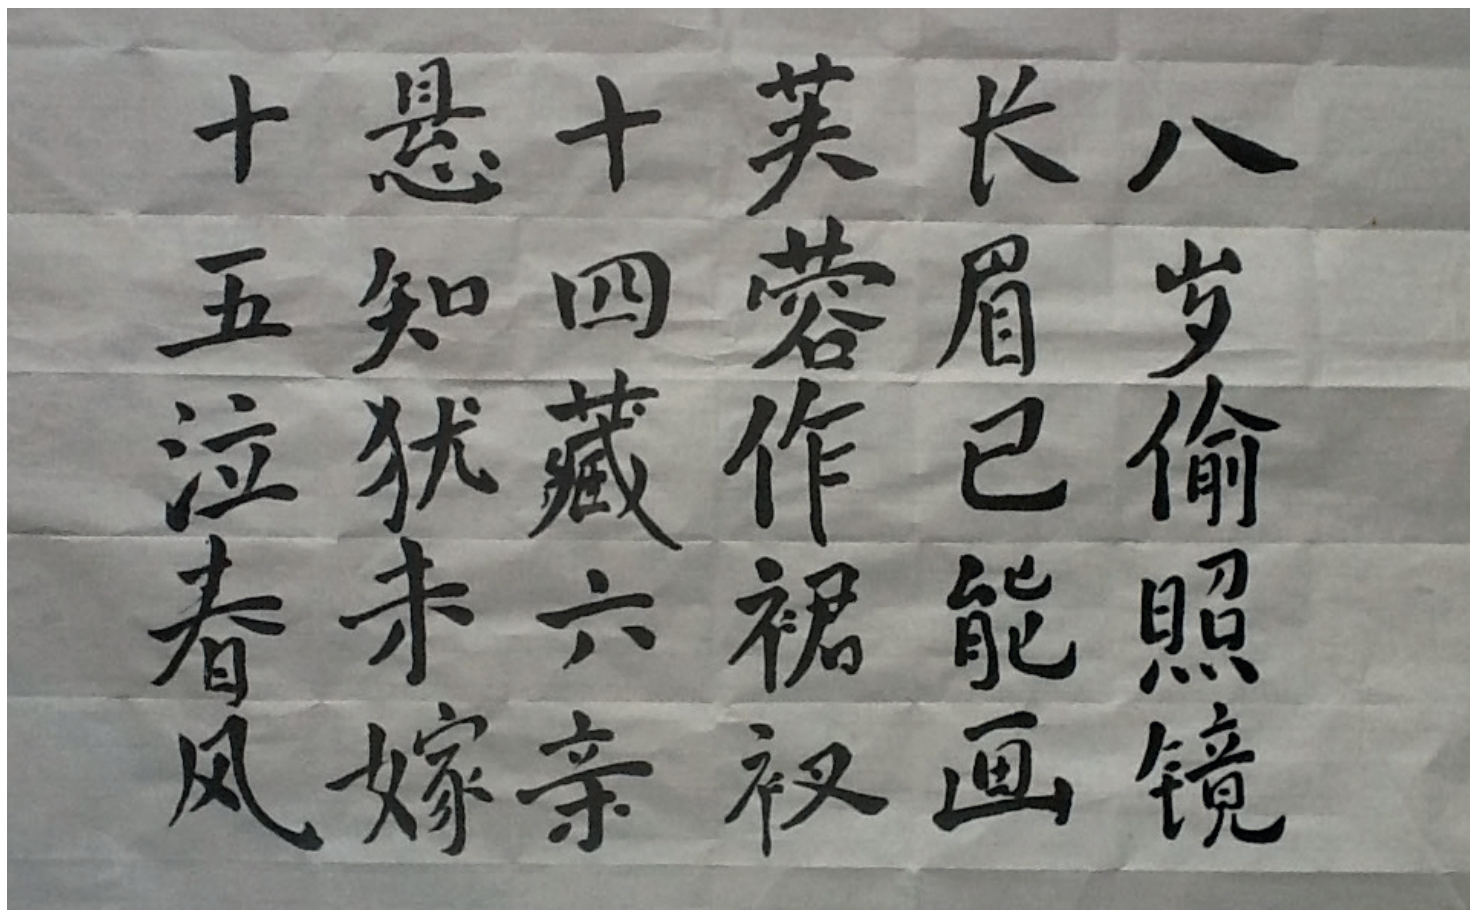 八岁偷照镜
长眉已能画
芙蓉作裙衩
十四藏六亲
悬知犹未嫁
十五泣春风